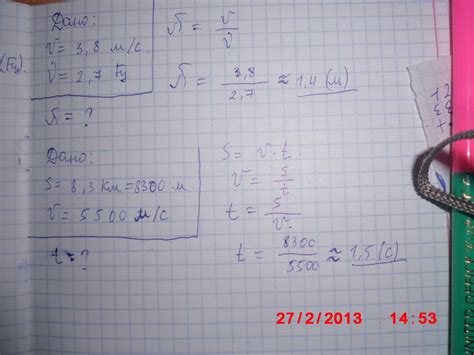 Дано:
V = 3,8 м/с.
ν = 2,7 Гц
λ = ?
λ = V/ν
λ = 3,8/2,7 ≈ 1,4 (м)
(Гц).
Дано:
S = 8,3 км = 8300 м.
V = 5500 м/с
t = ?
S = V · t.
V = S/t
t = S/V.
t = 8300/5500 ≈ 1,5 (с)
27/2/2013 14:53